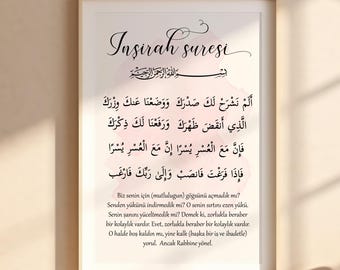 Inşirah suresi
بِسْمِ اللَّهِ الرَّحْمَنِ الرَّحِيمِ
أَلَمْ نَشْرَحْ لَكَ صَدْرَكَ وَوَضَعْنَا عَنكَ وِزْرَكَ
الَّذِي أَنقَضَ ظَهْرَكَ وَرَفَعْنَا لَكَ ذِكْرَكَ
فَإِنَّ مَعَ الْعُسْرِ يُسْرًا إِنَّ مَعَ الْعُسْرِ يُسْرًا
فَإِذَا فَرَغْتَ فَانصَبْ وَإِلَى رَبِّكَ فَارْغَب
Biz senin için (mutluluğun) göğsünü açmadık mı?
Senden yükünü indirmedik mi? O senin sırtını ezen yükü.
Senin şanını yüceltmedik mi? Demek ki, zorlukla beraber
bir kolaylık vardır. Evet, zorlukla beraber bir kolaylık vardır.
O halde boş kaldın mı, yine kalk (başka bir iş ve ibadetle)
yorul. Ancak Rabbine yönel.